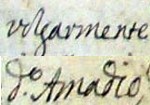 volgarmente
d.º Amadio